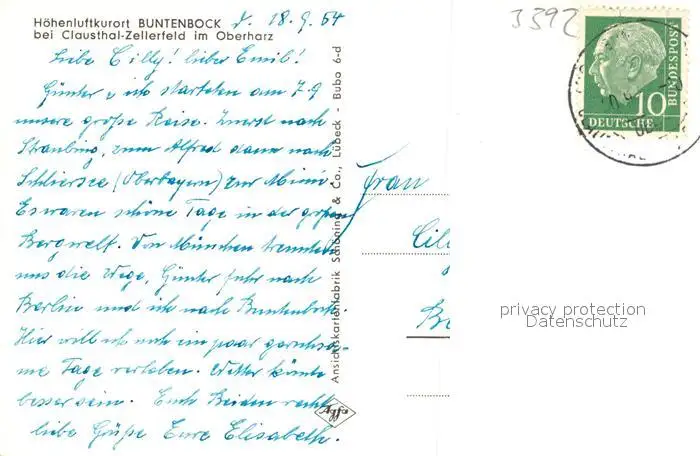 Höhenluftkurort BUNTENBOCK d. 18.9.64
bei Clausthal-Zellerfeld im Oberharz
Liebe Cilly! Lieber Emil!
Günter u ich starteten am 7.9
unsere große Reise. Zuerst nach
Straubing, zum Alfred dann nach
Schliersee (Oberbayern) zur Mimi
Es waren schöne Tage in der großen
Bergwelt. Von München trennten
uns die Wege, Günter fuhr nach
Berlin und ich nach Buntenbock.
Hier will ich noch ein paar geruhsa-
me Tage verleben. Wetter könnte
besser sein. Euch Beiden recht
liebe Grüße Eure Elisabeth.
Ansichtskartenfabrik Schöning & Co., Lübeck - Bubo 6-d
Agfa
3392
10
DEUTSCHE
BUNDESPOST
Frau
privacy protection
Datenschutz